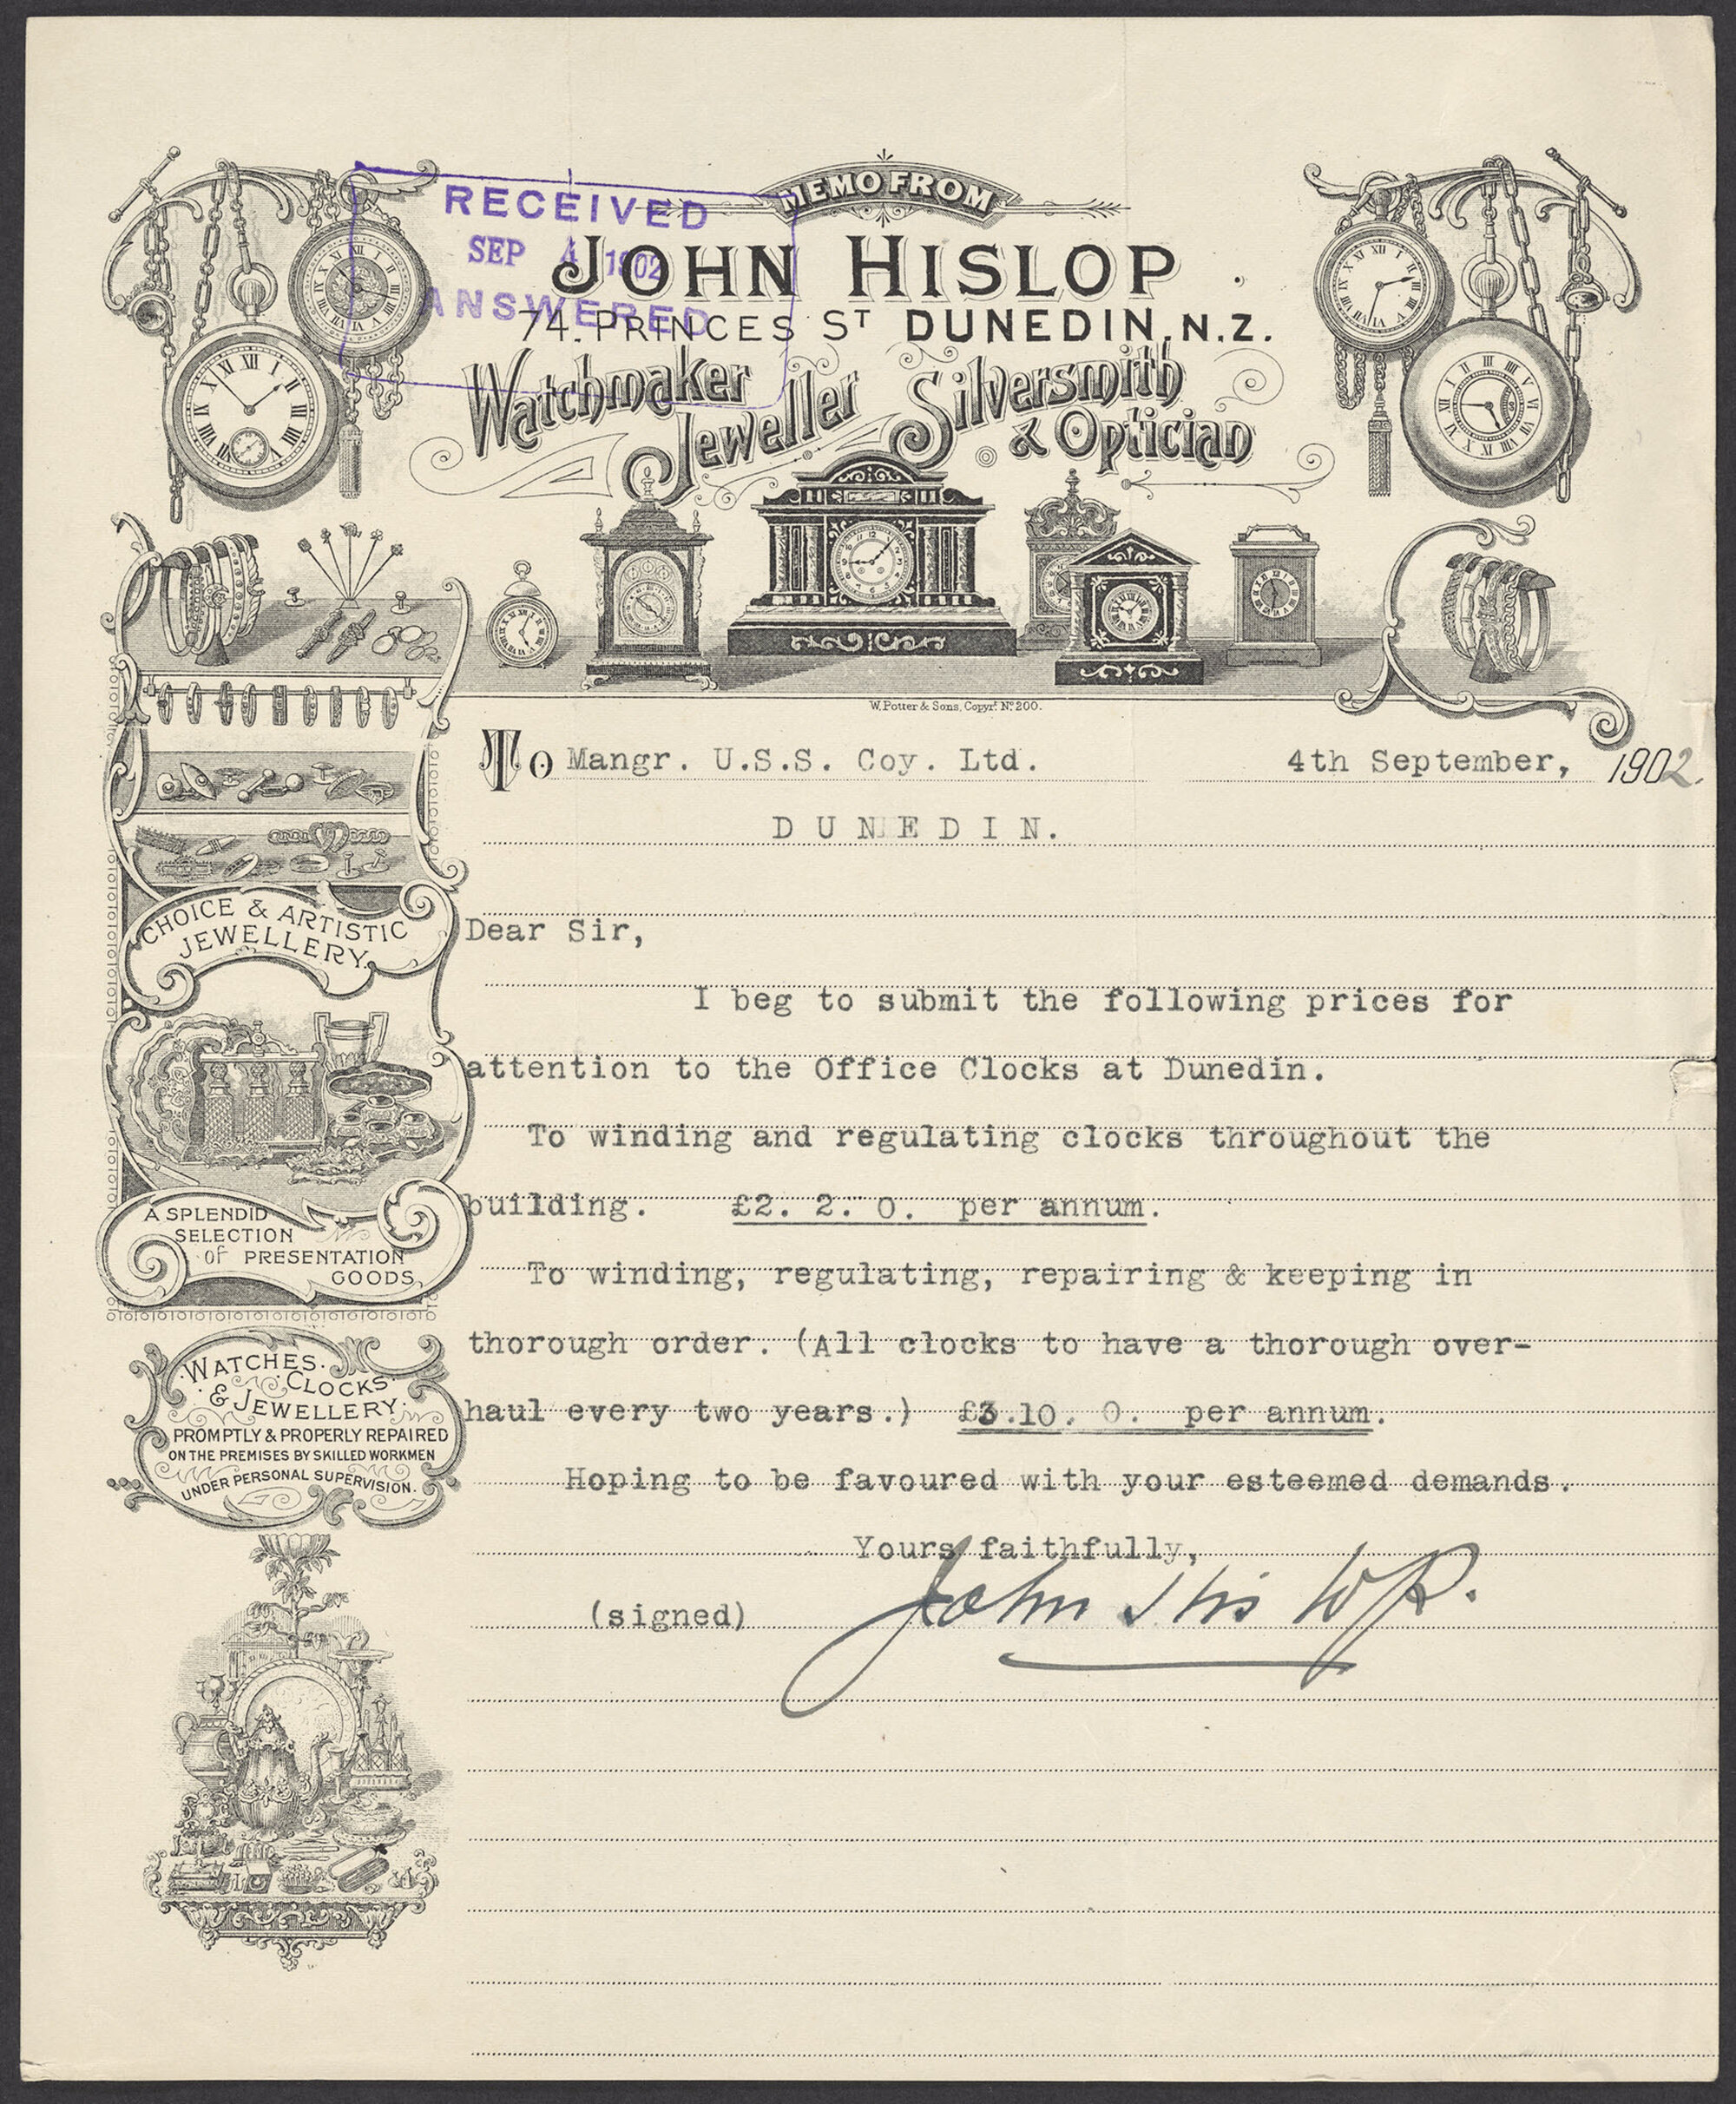 RECEIVED
SEP 4 1902
ANSWERED
MEMO FROM
JOHN HISLOP
74. PRINCES ST DUNEDIN, N.Z.
Watchmaker
Jeweller
Silversmith
& Optician
W. Potter & Sons, Copyrt. No. 200.
To Mangr. U.S.S. Coy. Ltd. 4th September, 1902.
DUNEDIN.
Dear Sir,
I beg to submit the following prices for
attention to the Office Clocks at Dunedin.
To winding and regulating clocks throughout the
building. £2. 2. 0. per annum.
To winding, regulating, repairing & keeping in
thorough order. (All clocks to have a thorough over-
haul every two years.) £3.10. 0. per annum.
Hoping to be favoured with your esteemed demands.
Yours faithfully,
(signed) John Hislop.
CHOICE & ARTISTIC
JEWELLERY.
A SPLENDID
SELECTION
of PRESENTATION
GOODS,
WATCHES.
CLOCKS
& JEWELLERY.
PROMPTLY & PROPERLY REPAIRED
ON THE PREMISES BY SKILLED WORKMEN
UNDER PERSONAL SUPERVISION.